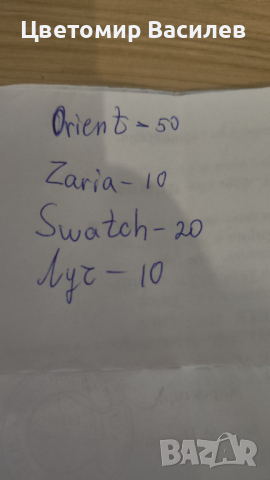 Цветомир Василев
Orient - 50
Zaria - 10
Swatch - 20
Луч - 10
БАЗАР